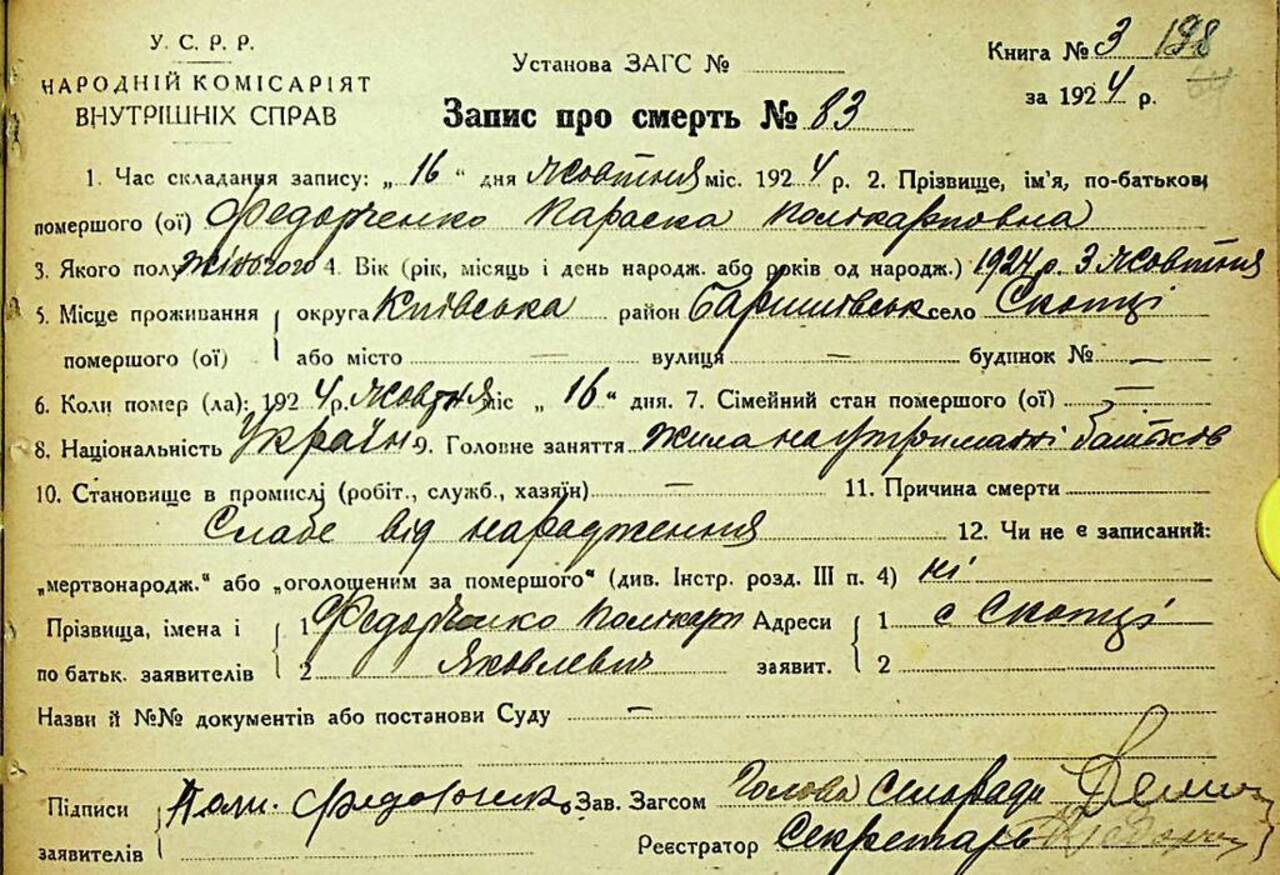 У. С. Р. Р.
НАРОДНІЙ КОМІСАРІЯТ
ВНУТРІШНІХ СПРАВ
Установа ЗАГС №
Книга № 3 198
за 1924 р.
Запис про смерть № 83
1. Час складання запису: „ 16 “ дня жовтня міс. 1924 р. 2. Прізвище, ім'я, по-батькові
помершого (ої) Федорченко Параска Полікарповна
3. Якого полу жіночого 4. Вік (рік, місяць і день народж. або років од народж.) 1924 р. 3 жовтня
5. Місце проживання округа Київська район Баришівськ село Скопці
помершого (ої) або місто — вулиця — будинок № —
6. Коли помер (ла): 1924 р. жовтня міс „ 16 “ дня. 7. Сімейний стан помершого (ої) —
8. Національність Україн 9. Головне заняття Жила на утриманні батьков
10. Становище в промислі (робіт., служб., хазяїн) — 11. Причина смерти
Слабе від нарадження 12. Чи не є записаний:
„мертвонародж.“ або „оголошеним за помершого“ (див. Інстр. розд. III п. 4) ні
Прізвища, імена і 1 Федорченко Полікарп Адреси 1 с Скопці
по батьк. заявителів 2 Яковлевич заявит. 2
Назви й №№ документів або постанови Суду —
Підписи Поли. Федорченко Зав. Загсом Голова Сельради
заявителів Реєстратор Секретарь